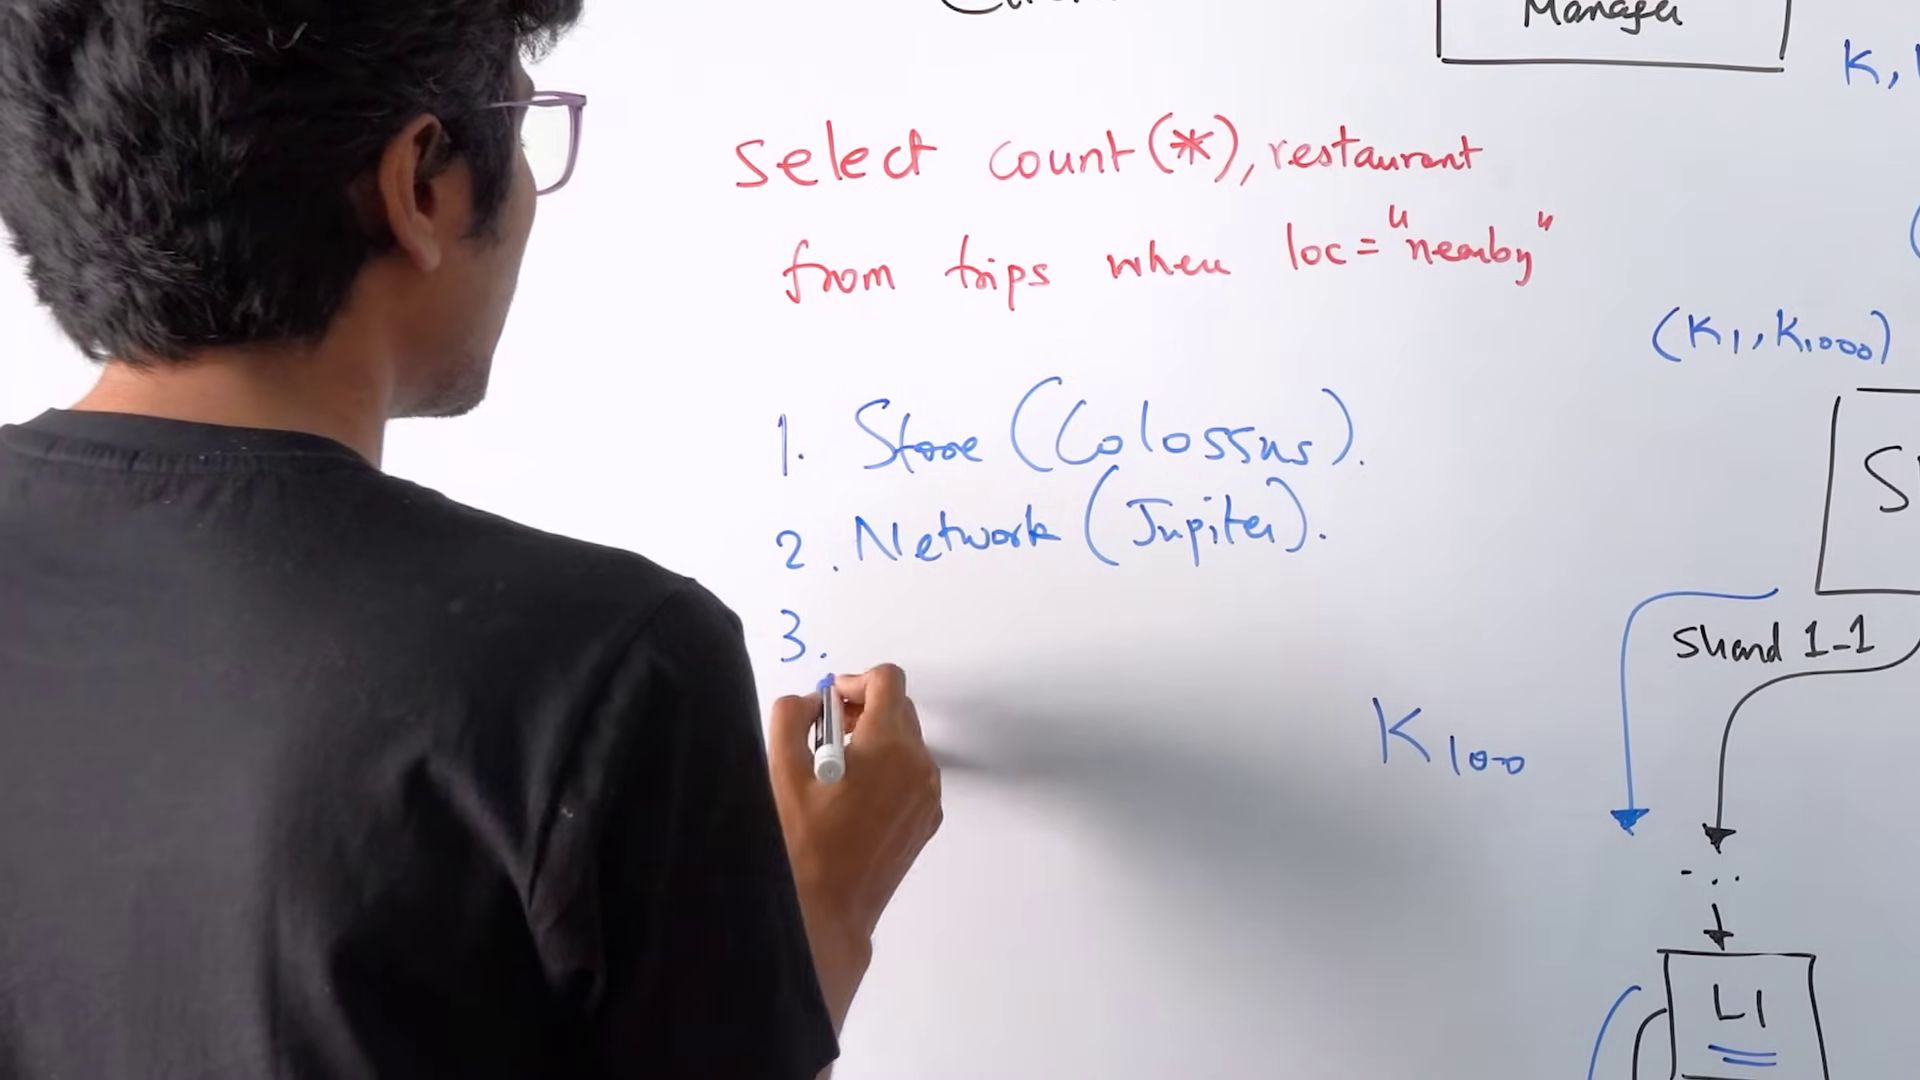 Manager
K,
select count(*), restaurant
from trips where loc="nearby"
(K1, K1000)
1. Store (Colossus).
S
2. Network (Jupiter).
3.
Shard 1-1
K100
...
L1